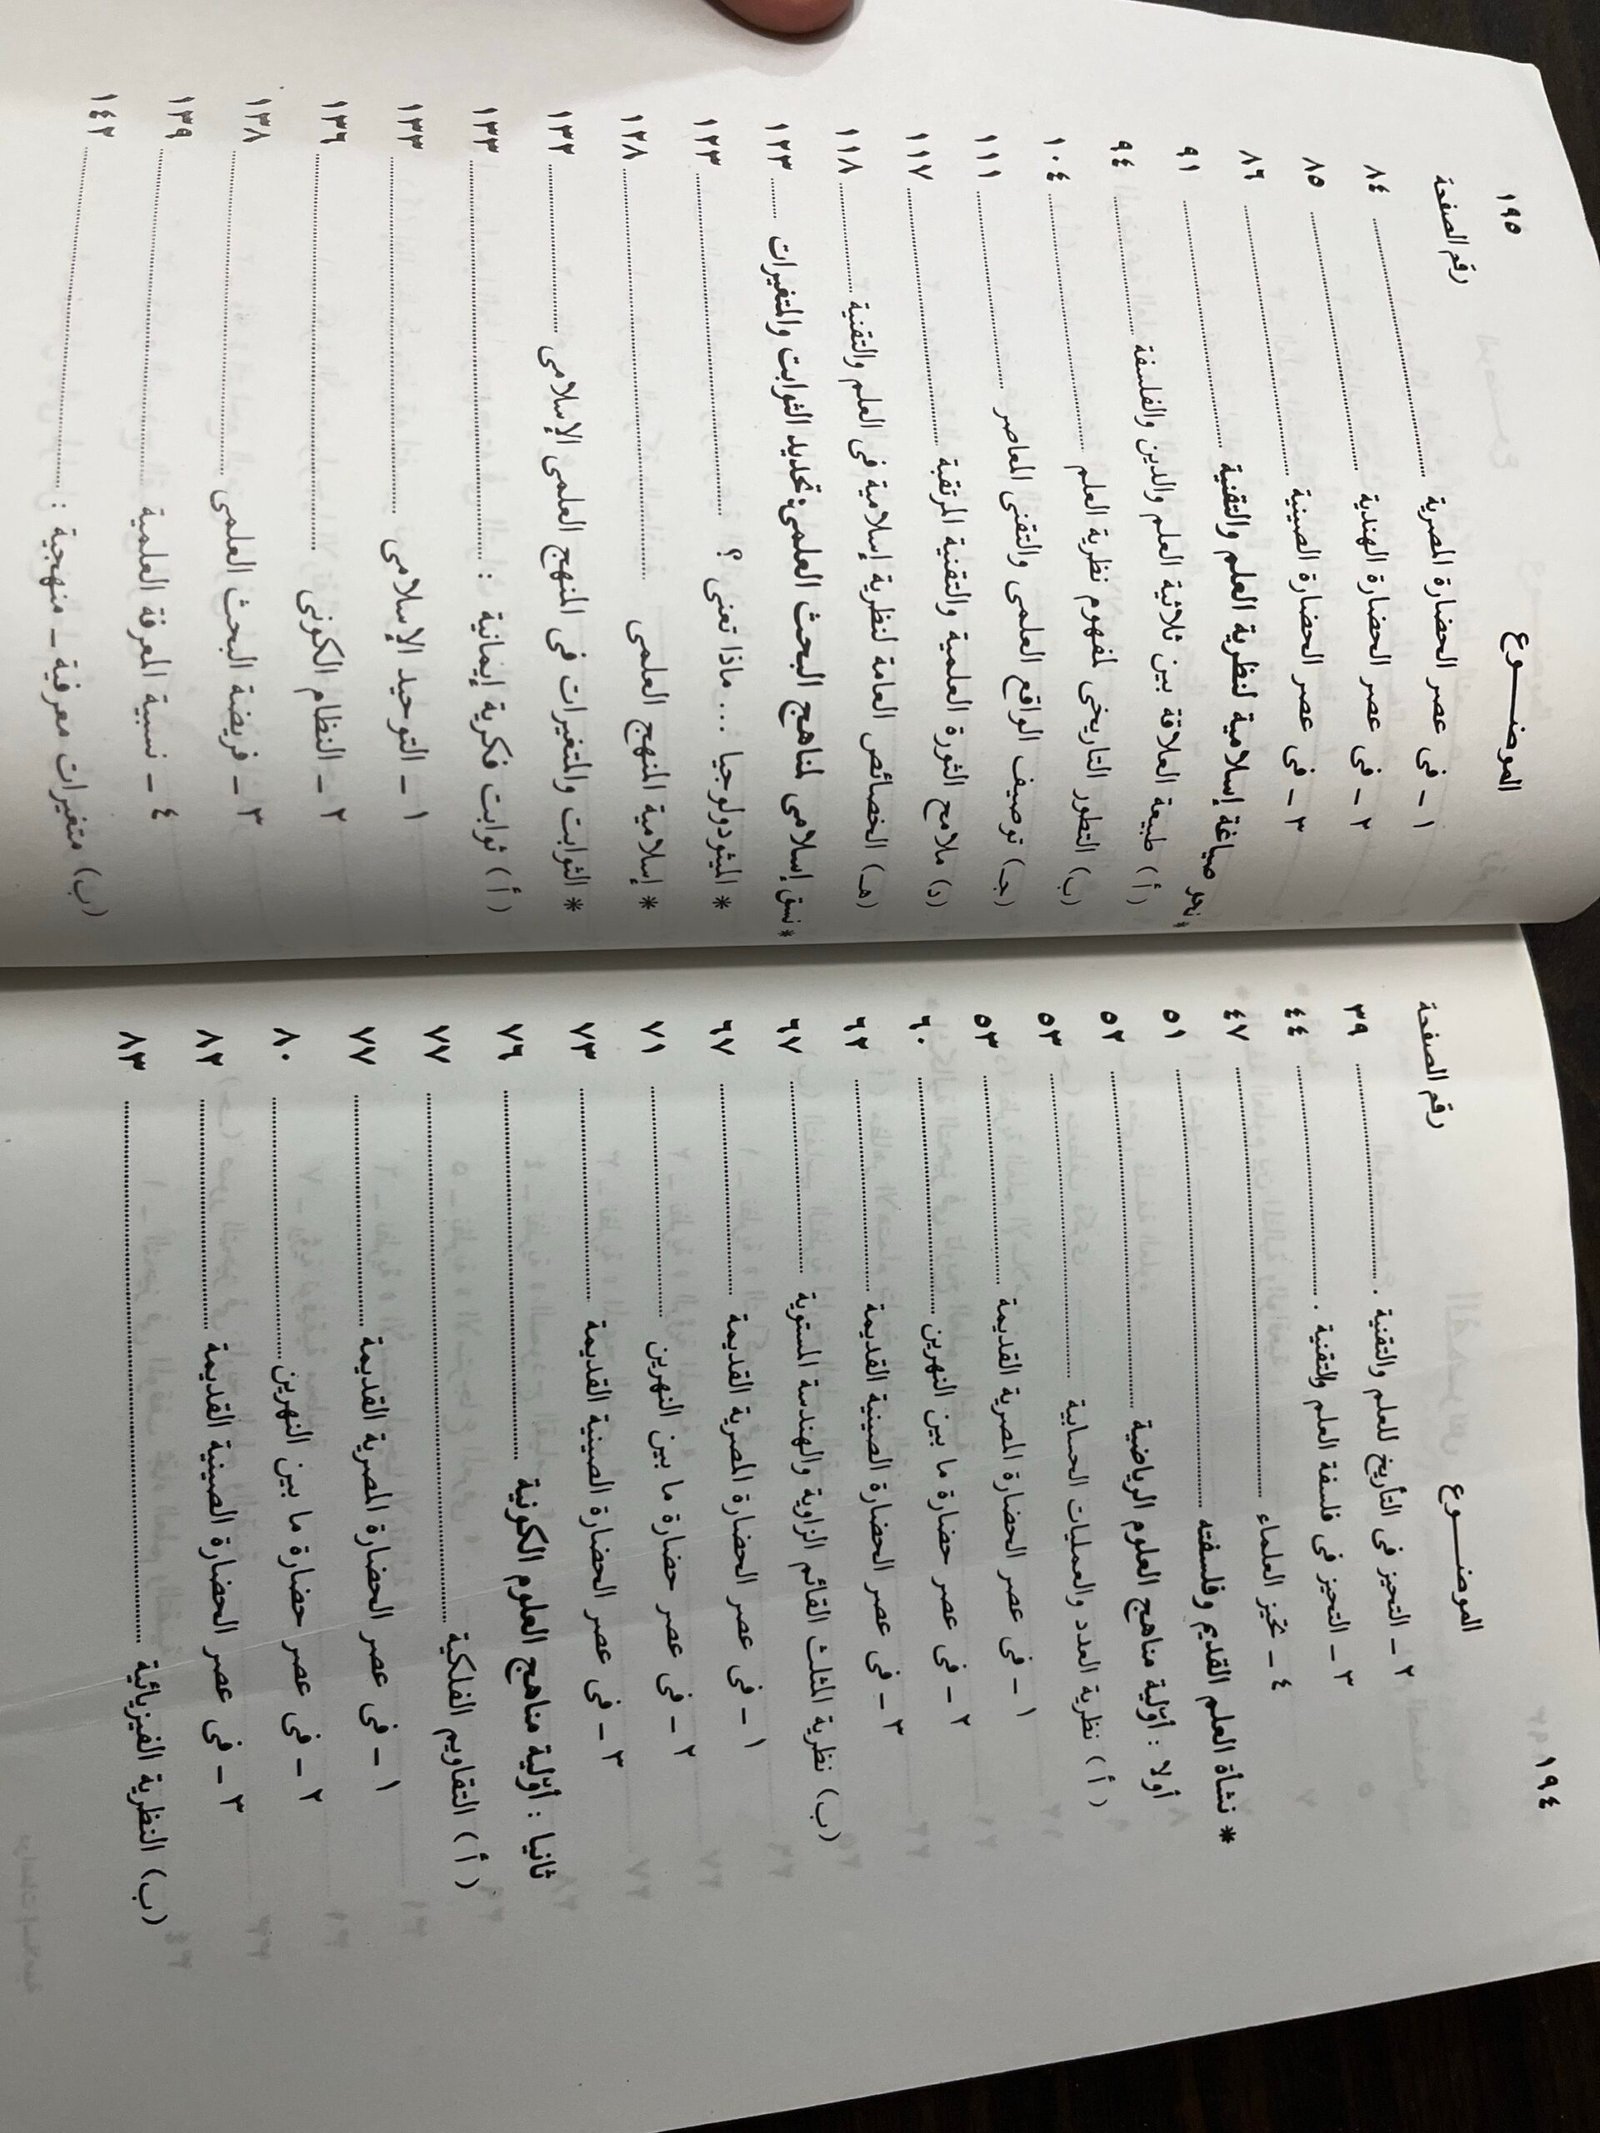 ١٩٤
الموضــــوع رقم الصفحة
٢ ــ التحيز فى التأريخ للعلم والتقنية ٣٩
٣ ــ التحيز فى فلسفة العلم والتقنية ٤٤
٤ ــ تحيز العلماء ٤٧
* نشأة العلم القديم وفلسفته ٥١
أولا : أوّلية مناهج العلوم الرياضية ٥٢
( أ ) نظرية العدد والعمليات الحسابية ٥٣
١ ــ فى عصر الحضارة المصرية القديمة ٥٣
٢ ــ فى عصر حضارة ما بين النهرين ٦٠
٣ ــ فى عصر الحضارة الصينية القديمة ٦٢
(ب) نظرية المثلث القائم الزاوية والهندسة المستوية ٦٧
١ ــ فى عصر الحضارة المصرية القديمة ٦٧
٢ ــ فى عصر حضارة ما بين النهرين ٧١
٣ ــ فى عصر الحضارة الصينية القديمة ٧٣
ثانيا : أوّلية مناهج العلوم الكونية ٧٦
( أ ) التقاويم الفلكية ٧٧
١ ــ فى عصر الحضارة المصرية القديمة ٧٧
٢ ــ فى عصر حضارة ما بين النهرين ٨٠
٣ ــ فى عصر الحضارة الصينية القديمة ٨٢
(ب) النظرية الفيزيائية ٨٣
١٩٥
الموضــــوع رقم الصفحة
١ ــ فى عصر الحضارة المصرية ٨٤
٢ ــ فى عصر الحضارة الهندية ٨٥
٣ ــ فى عصر الحضارة الصينية ٨٦
* نحو صياغة إسلامية لنظرية العلم والتقنية ٩١
( أ ) طبيعة العلاقة بين ثلاثية العلم والدين والفلسفة ٩٤
(ب) التطور التاريخى لمفهوم نظرية العلم ١٠٤
(جـ) توصيف الواقع العلمى والتقنى المعاصر ١١١
(د) ملامح الثورة العلمية والتقنية المرتقبة ١١٧
(هـ) الخصائص العامة لنظرية إسلامية فى العلم والتقنية ١١٨
* نسق إسلامى لمناهج البحث العلمى : تحديد الثوابت والمتغيرات ١٢٣
* الميثودولوجيا ... ماذا تعنى ؟ ١٢٣
* إسلامية المنهج العلمى ١٢٨
* الثوابت والمتغيرات فى المنهج العلمى الإسلامى ١٣٢
( أ ) ثوابت فكرية إيمانية : ١٣٣
١ ــ التوحيد الإسلامى ١٣٣
٢ ــ النظام الكونى ١٣٦
٣ ــ فريضة البحث العلمى ١٣٨
٤ ــ نسبية المعرفة العلمية ١٣٩
(ب) متغيرات معرفية ــ منهجية : ١٤٢